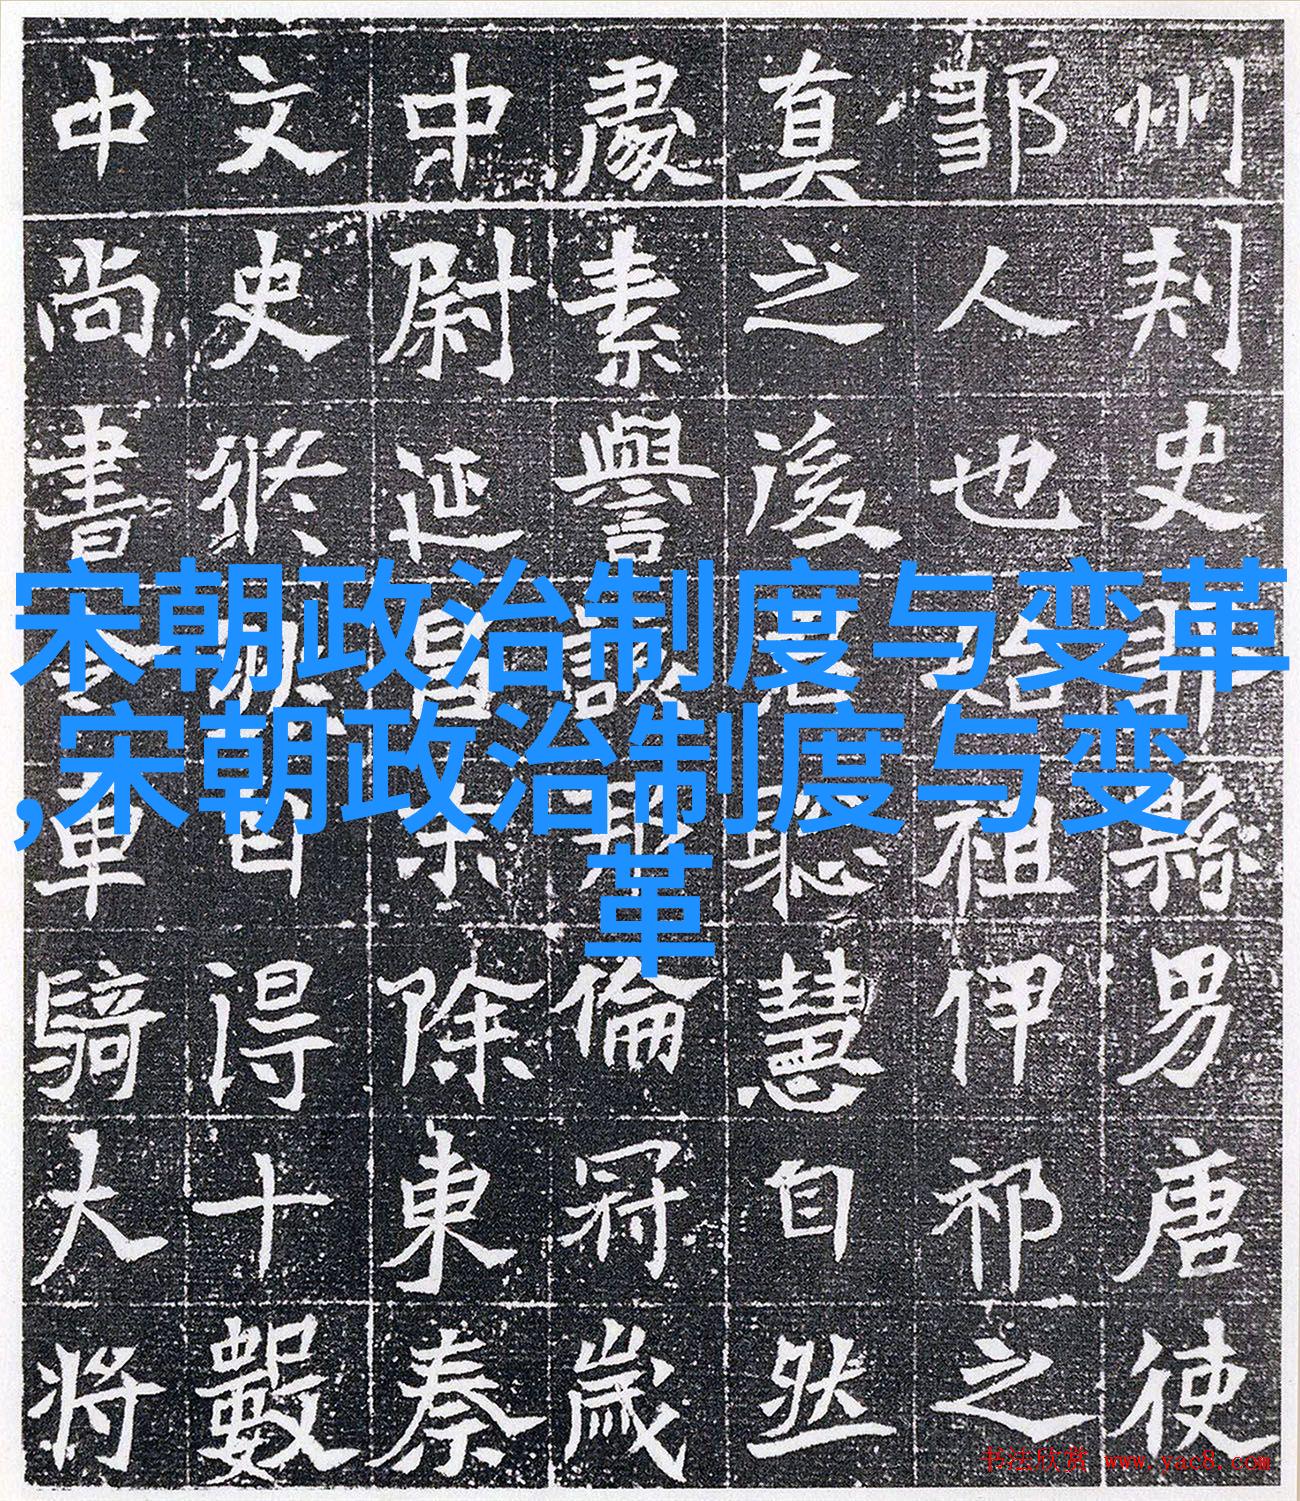 州刾史縣男唐使
鄒人也始祖伊祁之
真之後君聡慧自然
素譽談倫冠歲
中尉延昌末除東秦
文史修日得十數
中尚書令車騎大將
宋朝政治制度与变革
,宋朝政治制度与变
革
书法欣赏 www.yac8.com